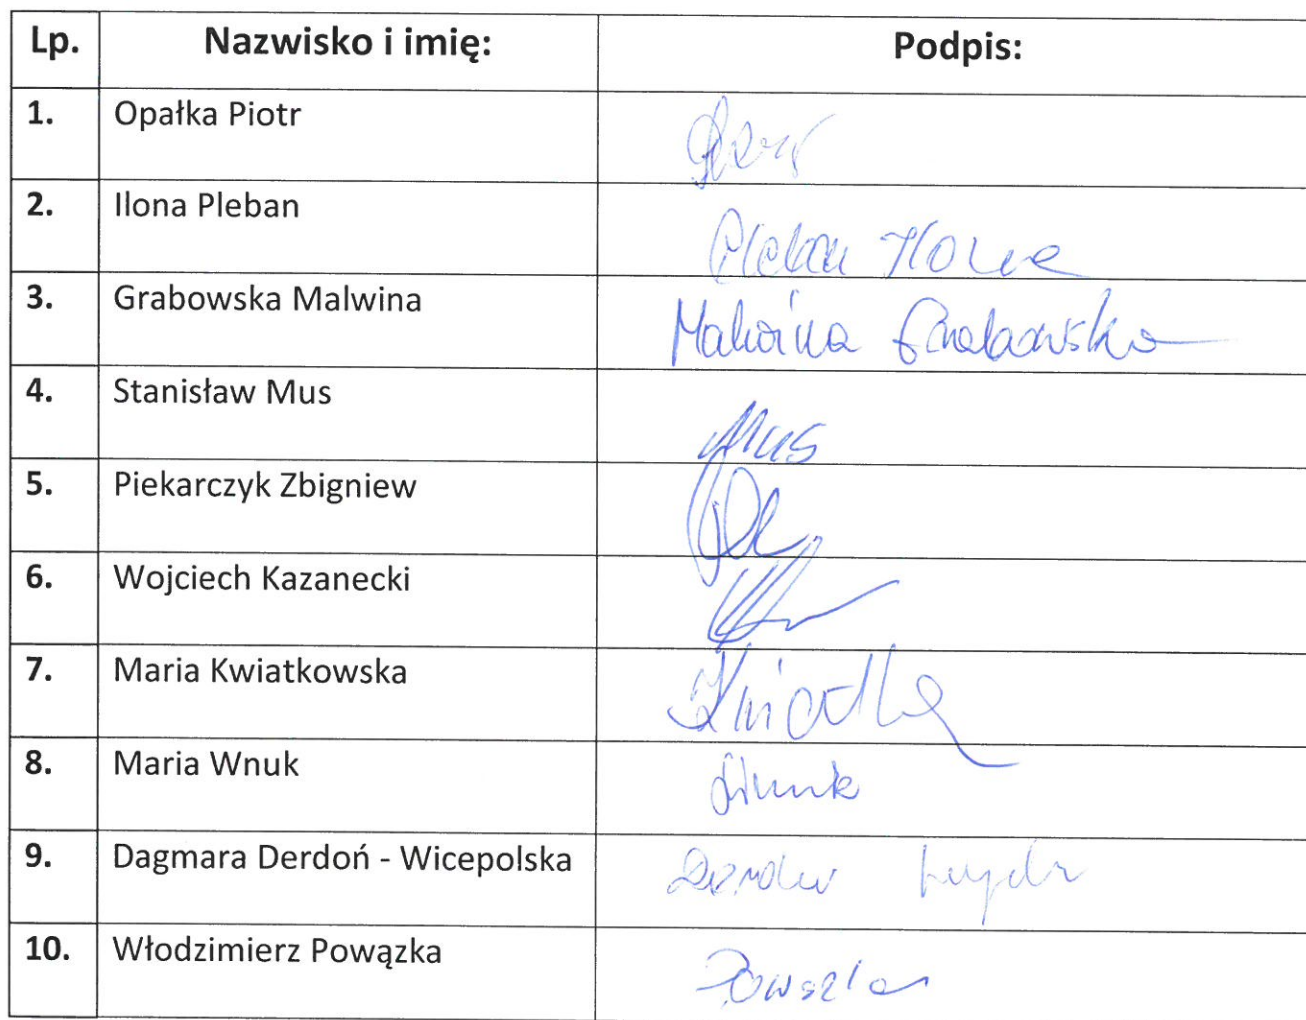 Lp. Nazwisko i imię: Podpis:
1. Opałka Piotr
2. Ilona Pleban Pleban Ilona
3. Grabowska Malwina Malwina Grabowska
4. Stanisław Mus Mus
5. Piekarczyk Zbigniew
6. Wojciech Kazanecki
7. Maria Kwiatkowska
8. Maria Wnuk
9. Dagmara Derdoń - Wicepolska
10. Włodzimierz Powązka